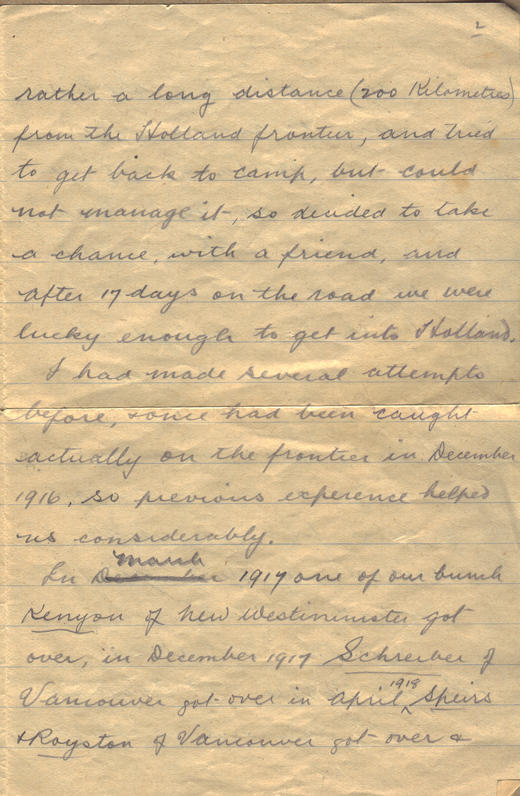 2
rather a long distance (200 Kilometres)
from the Holland frontier, and tried
to get back to camp, but could
not manage it, so decided to take
a chance, with a friend, and
after 17 days on the road we were
lucky enough to get into Holland.
I had made several attempts
before, some had been caught
actually on the frontier in December
1916, so previous experence helped
us considerably.
In March 1917 one of our bunch
Kenyon of New Westiminster got
over, in December 1917 Schreiber of
Vancouver got over in April 1918 Speirs
& Royston of Vancouver got over &